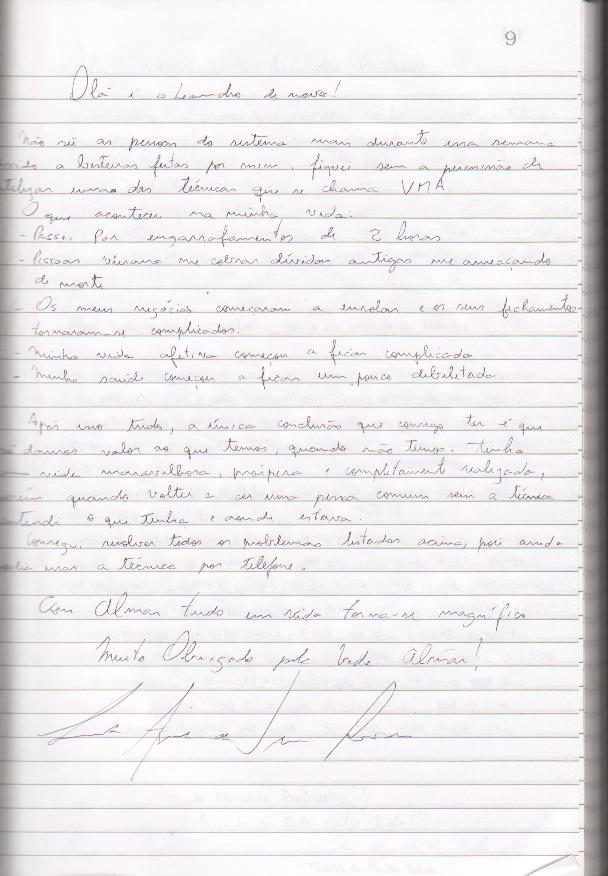 9
Olá é o Leandro de novo!
Não sei as pessoas do sistema mas durante essa semana
a besteiras feitas por mim, fiquei sem a permissão de
utilizar umas das técnicas que se chama VMA.
O que aconteceu na minha vida:
- Passei por engarrafamentos de 2 horas
- Pessoas vieram me cobrar dívidas antigas me ameaçando
de morte
- Os meus negócios começaram a enrolar e os seus fechamentos
tornaram-se complicados.
- Minha vida afetiva começou a ficar complicada
- Minha saúde começou a ficar um pouco debilitada.
Após isso tudo, a única conclusão que consigo ter é que
só damos valor ao que temos, quando não temos. Tinha
vida maravilhosa, próspera e completamente realizada,
porém quando voltei a ser uma pessoa comum sem a técnica
entendi o que tinha e aonde estava.
Consegui resolver todos os problemas listados acima, pois ainda
usar a técnica por telefone.
Com Almar tudo em vida torna-se magnífico
Muito Obrigado pela Almar!